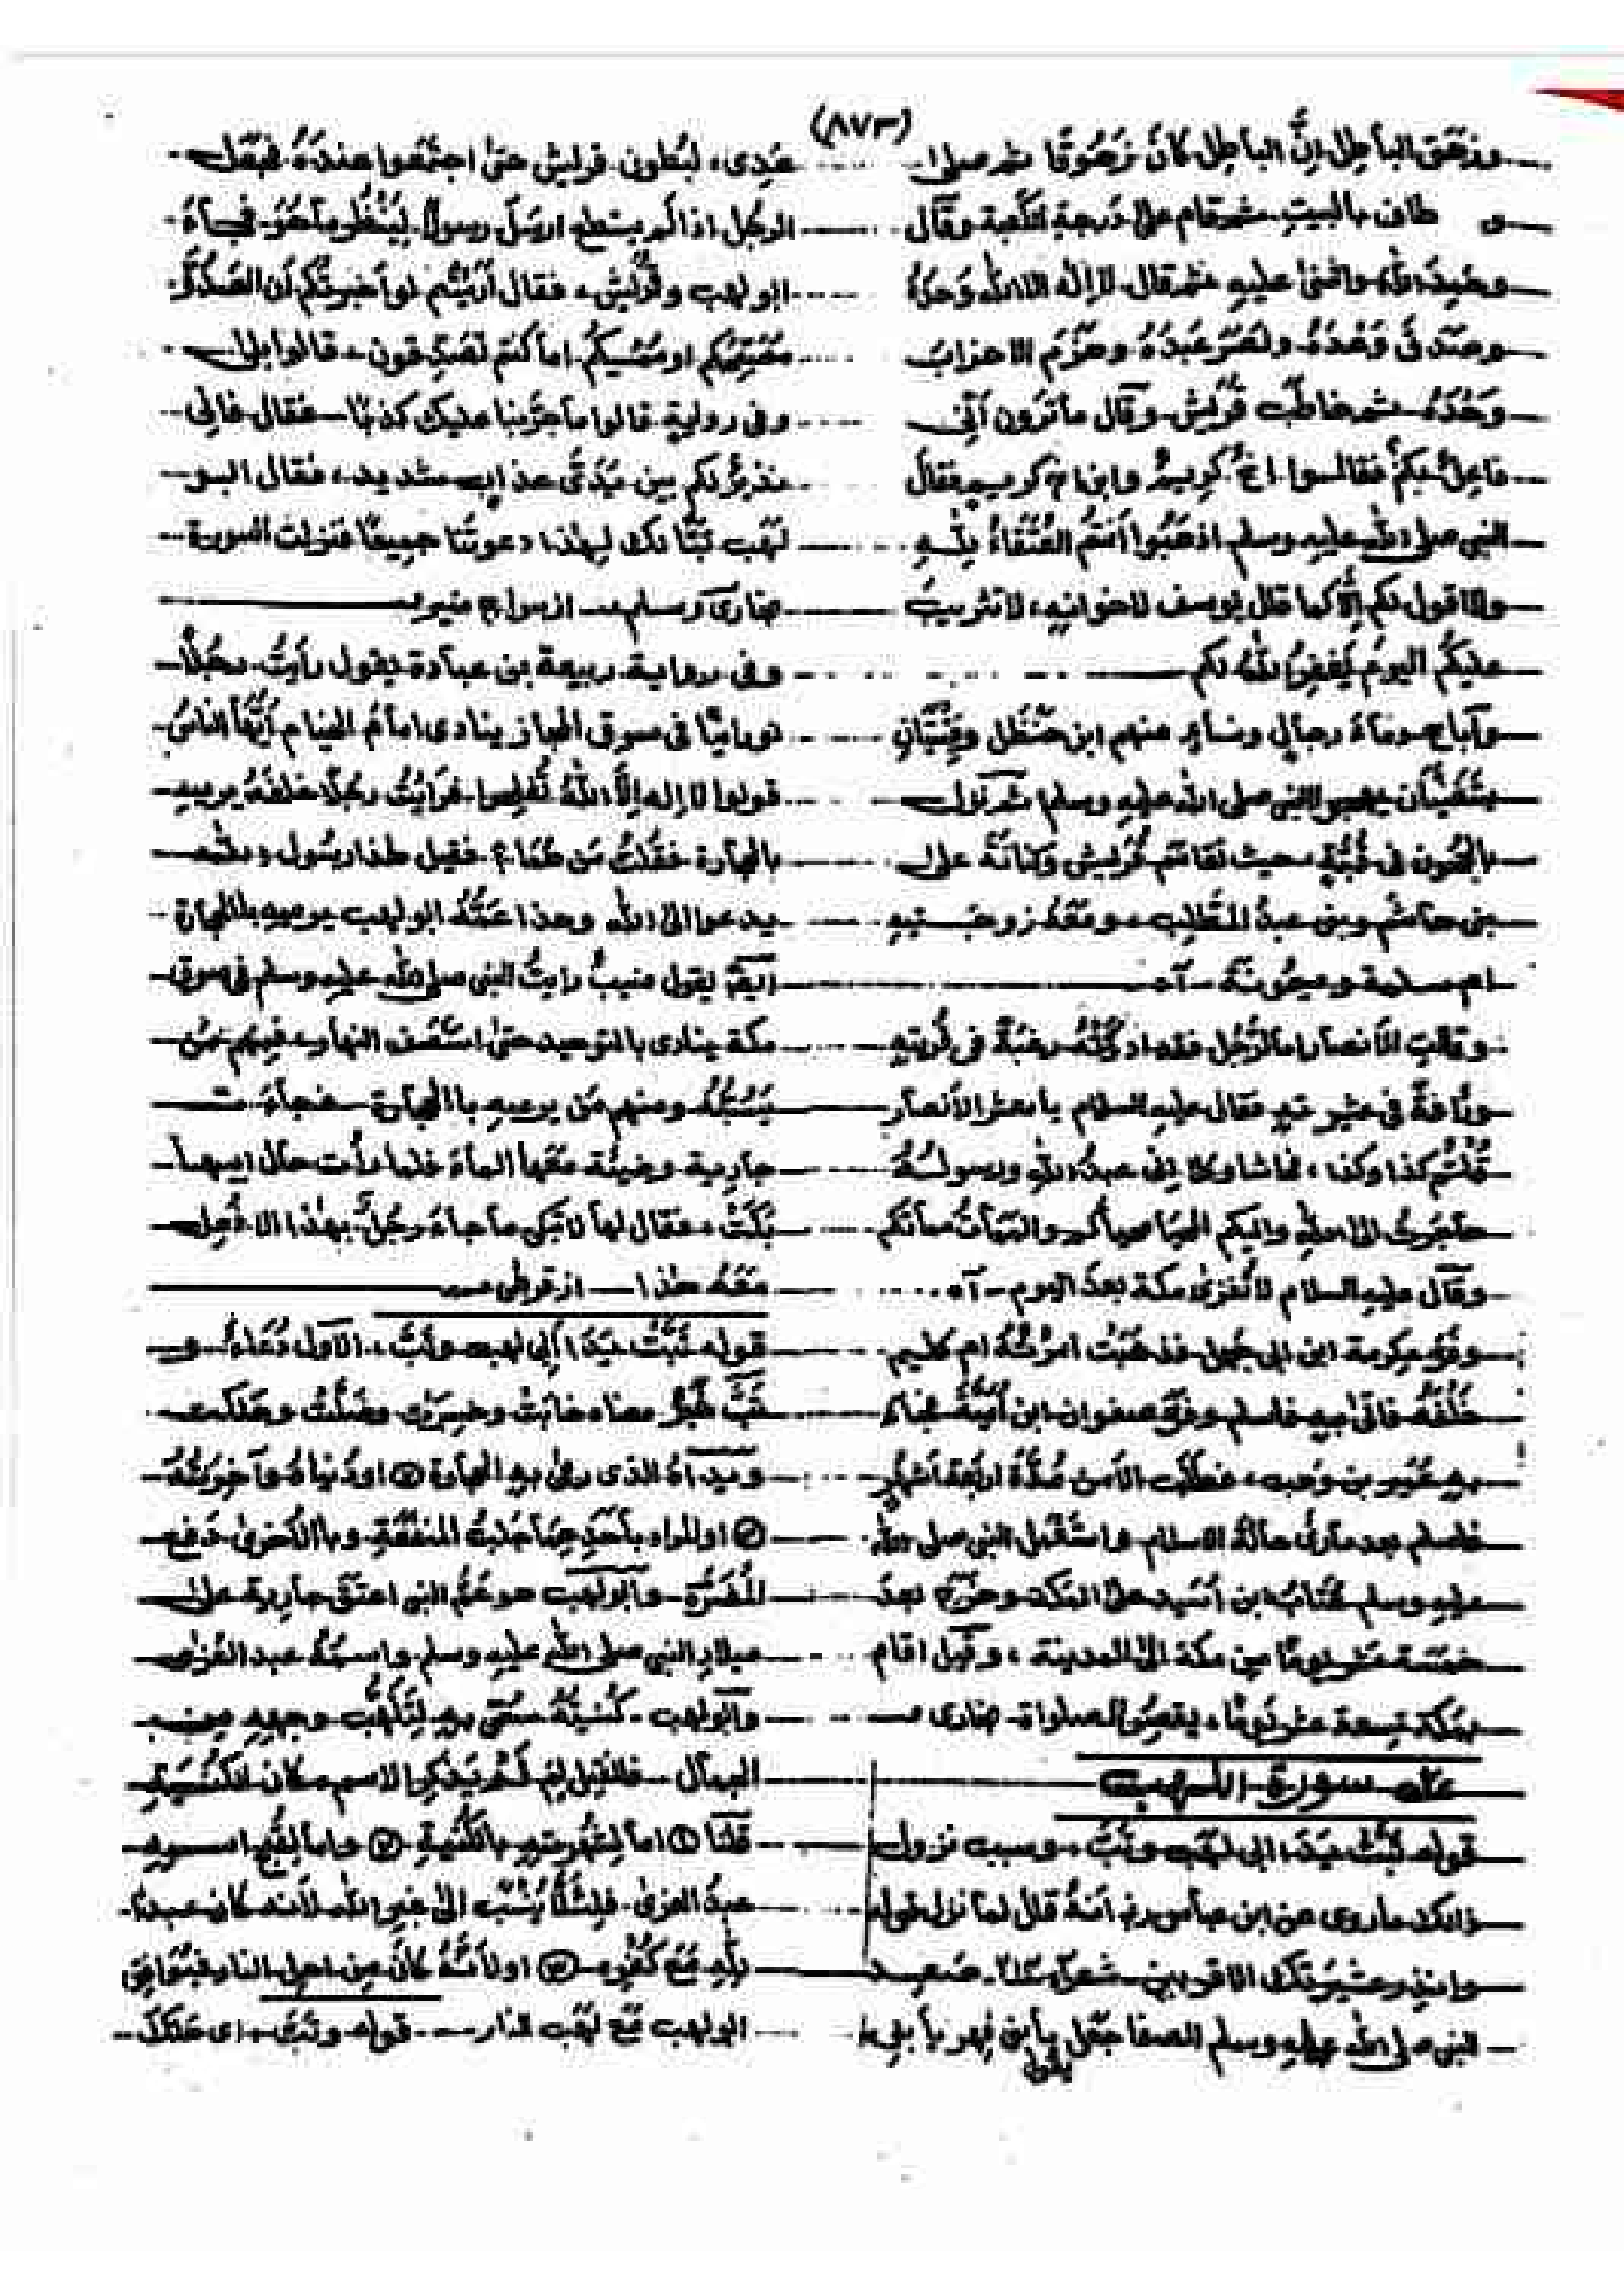 (٨٧٣)
وزهق الباطل إنَّ الباطل كانَ زهُوقًا ثم صلى
و طاف بالبيتِ ثم قام على دَرجةِ الكعبة وقال
وحَمِدَ اللهَ واثنىٰ عليهِ ثم قال لا إله الا الله وَحدَهُ
وصَدَقَ وَعْدَهُ ونَصَرَ عَبدَهُ وهزَمَ الاحزابَ
وَحْدَهُ ثم خاطب قُريش وقال ما ترون أنّي
فاعِلٌ بكمْ فقالوا اخٌ كريمٌ وابن اخ كريم فقال
النبي صلى الله عليه وسلم اذهَبُوا أنتُم الطُّلقَاءُ لِلّٰهِ
ولا اقول لكم إلَّا كما قال يوسف لاخوانهِ لا تثريبَ
عليكُم اليومَ يَغفِرُ اللهُ لكم
وأباح دماءَ رجالٍ ونساءٍ منهم ابن خنظل وقَيْنَتَانِ
يتغنيان بهجو النبي صلى الله عليه وسلم ثم نزل
بالحجون فى قُبَّةٍ حيث تقاسَمَ قُريش وكنانَة على
بنى هاشم وبنى عبدُ المُطَّلِب ومَعَهُ زوجَتيهِ
ام سلمة وميمونة - آه
وقالت الأنصار اما الرَّجُل فقد ادركتْهُ رغبَةٌ فى قُريتهِ
ورأفةٌ فى عشيرتهِ فقال عليه السلام يا معشر الأنصار
قُلْتُم كذا وكذا، فما شا وكلا إنى عبدُ اللهِ ورسولُهُ
هاجرتُ الى اللهِ واليكم المحيا محياكم والمماتُ مماتكم
وقال عليه السلام لا تُغزىٰ مكة بعدَ اليوم - آه
وفرّ عِكرمة ابن ابى جهل فذهبَتْ امرئتُهُ ام حكيم
خَلْفَهُ فاتىٰ بهِ فاسلم وفرّ صفوان ابن أُمَيَّةَ فجاء
بهِ عُمَير بن وَهب، فطلَب الأمن مُدَّةَ اربَعَةَ اَشهُرٍ
فاسلم بعد مارأى حالة الاسلام واستقبل النبى صلى الله
عليه وسلم عُتَّابُ ابن أُسَيد على المكة وخرَج بعدَ
خمسَة عشر يومًا مِن مكة الىٰ المدينة، وقِيل اقام
بمكة تسعة عشر يَومًا، يقصِرُ الصلواة بخارى
سورة اللهب
قوله تَبَّتْ يَدَا ابى لهَبٍ وتَبَّ، وسبب نزول
ذالك ما روى عن ابن عباس رض أنهُ قال لما نزل قوله
وانذِر عشيرتك الاقربين صَعِد
النبى صلى الله عليه وسلم الصفا جعَل يا بنى فِهر يا بنى
عَدِى، لبُطون قريش حتىٰ اجتَمَعوا عندَهُ فجَعَل
الرجُل اذا لَم يستطع ارسَلَ رسولًا لِيَنْظُر ما هوَ فجاءَ
ابو لهب وقُرَيش، فقال أرَئيتُم لو أخبرتُكم أن العدُوَّ
مُصَبِّحُكم او مُمَسِّيكُم اما كنتم تُصَدِّقون، قالوا بلىٰ
وفى رواية قالوا ما جَرَّبنا عليك كذبًا - فقال فإنّى
نذيرٌ لكم بين يَدَىْ عذابٍ شديد، فقال ابو
لهَب تَبًّا لك لهٰذا دعوتَنا جميعًا فنزلت السورة
بخارى ومسلم - از سراج منير
وفى رواية ربيعة بن عبادة يقول رأيتُ رجُلًا
نورانيًّا فى سوق المجاز ينادى امامُ الخيام أيُّها الناسُ
قولوا لا إله إلَّا اللهُ تُفلِحوا فرأيتُ رجُلًا خلفَهُ يرميهِ
بالحجارة فقلتُ مَن هٰذا؟ فقيل هٰذا رسُول الله
يدعوا الىٰ الله وهذا عَمُّهُ ابو لهب يرميهِ بالحجارة
ايضًا يقول منيبٌ رايتُ النبى صلى الله عليه وسلم فى سوق
مكة ينادى بالتوحيد حتىٰ انتَصَف النهار، فمنهم مَن
يَسُبُّهُ ومنهم مَن يرميهِ بالحجارة فجاءَت
جارية وضيئة معَها الماءُ فلما رأت حال ابيها
بَكَتْ، فقال لها لا تبكى ما جاءَ رجُلٌ بهٰذا الا فُعِل
مَعَهُ هٰذا - از قرطبى
قوله تَبَّتْ يَدَا أبى لهب وتَبَّ، الأول دُعاءٌ و
تَبَّ خَبَرٌ معناه خابَتْ وخسِرَت وضلَّتْ وهلكت
ويداهُ الذى رمىٰ بهِ الحجارة ② او دُنياهُ وآخِرَتُهُ
③ او المراد بأحَدِهِمَا جَلبُ المنفعَةِ وبالأخرىٰ دَفع
المُضَرَّةِ - وابو لهب هو عَمُّ النبى اعتقَ جاريةً علىٰ
ميلادِ النبى صلى الله عليه وسلم واسمُهُ عبد العُزىٰ
وابو لهب كُنيتُهُ سُمِّىَ بهِ لِتَلَهُّبِ وجهِهِ مِن
الجمال - فان قيل لِمَ لَمْ يَذكر الاسم مكانَ الكُنْيَةِ
قلنا ① اما لِشُهرتِهِ بالكُنْيةِ ② واما لِقُبح اسمهِ
عبدُ العزىٰ فلئَلَّا يُنسَب الىٰ غير الله لأنه كان عبدًا
لِلّٰهِ مَعَ كُفرِه ③ او لأنَّهُ كانَ مِن اهل النار فيُوَافق
ابو لهب مَعَ لهَب النار - قوله وتبَّ، اى هلكَ